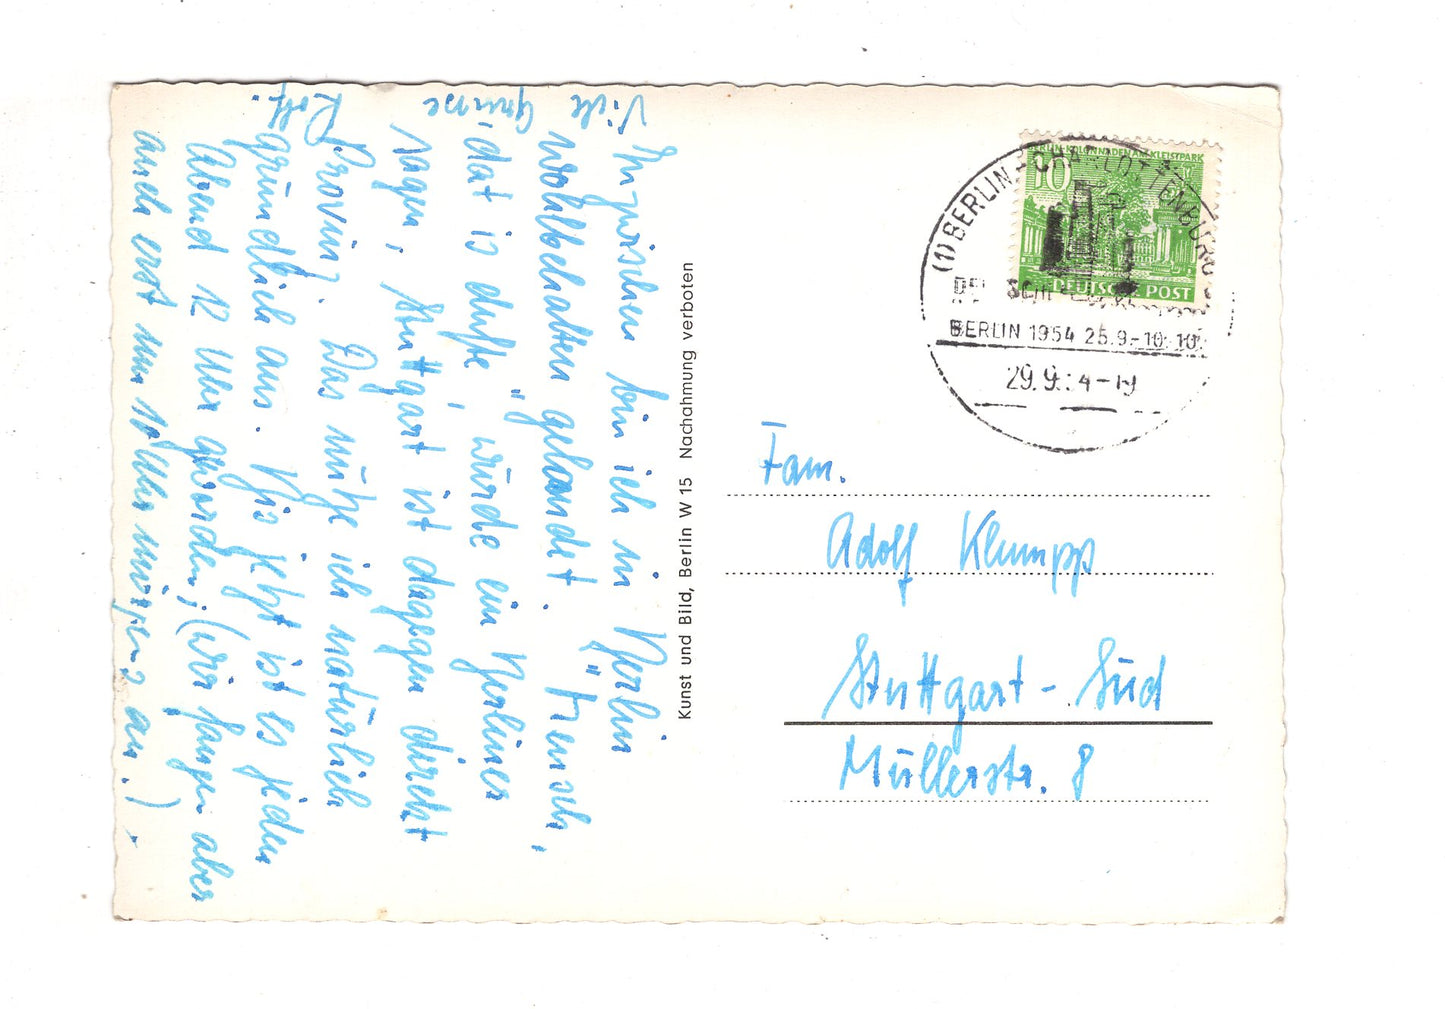 Inzwischen bin ich in Berlin
wohlbehalten gelandet. „Mensch,
dat is dufte", würde ein Berliner
sagen, Stuttgart ist dagegen direkt
Provinz. Das nütze ich natürlich
gründlich aus. Bis jetzt ist es jeden
Abend 12 Uhr geworden, (wir fangen aber
auch erst um 10 Uhr morgens an.).
Viele Grüsse
Rolf.
Kunst und Bild, Berlin W 15 Nachahmung verboten
BERLIN-KOLONNADEN AM KLEISTPARK
10
DEUTSCHE POST
(1) BERLIN-CHARLOTTENBURG
BERLIN 1954 25.9.-10.10.
Fam.
Adolf Klumpp
Stuttgart-Süd
Müllerstr. 8